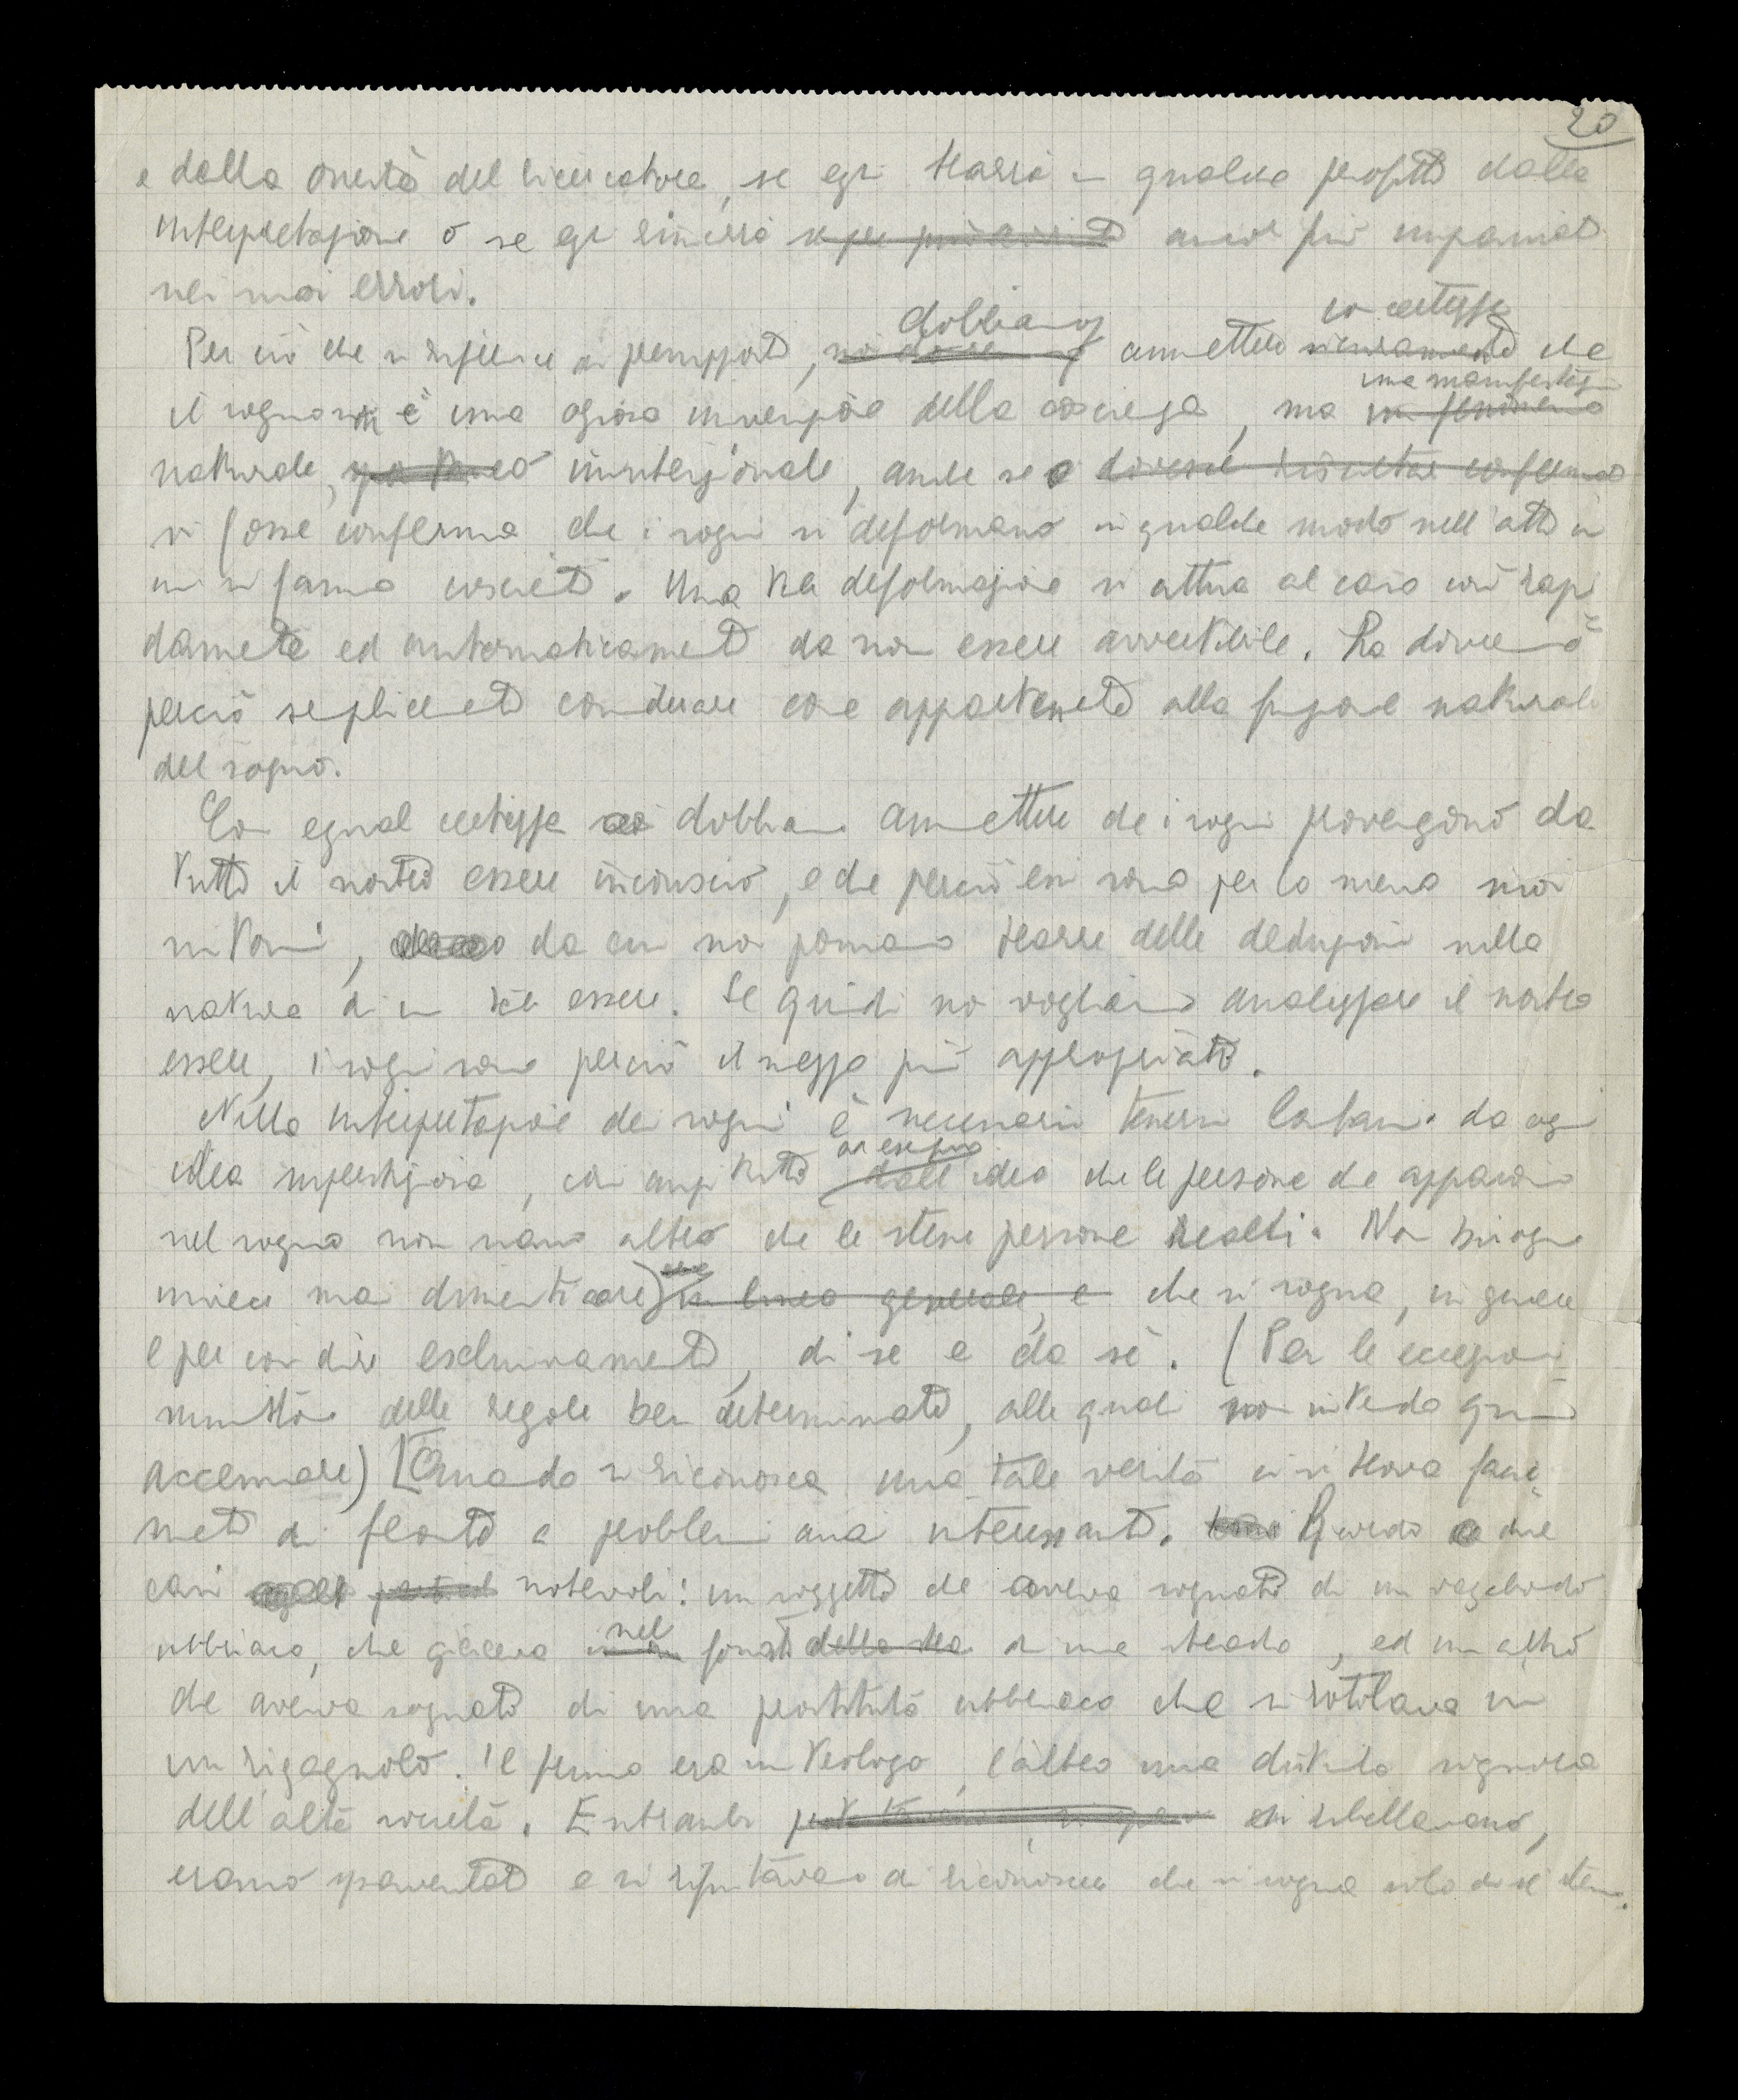 20
e dalla onestà del ricercatore, se egli trarrà un qualche profitto dalla
interpretazione o se egli rimarrà ancor più impaniato
nei suoi errori.
Per ciò che si riferisce ai presupposti, dobbiamo ammettere con certezza che
il sogno non è una oziosa invenzione della coscienza, ma una manifestazione
naturale, inintenzionale, anche se dovesse risultar confermato
vi fosse conferma che i sogni si deformano in qualche modo nell'atto in
cui si fanno coscienti. Una tale deformazione si attua al caso così rapi
damente ed automaticamente da non essere avvertibile. La dovremo
perciò semplicemente considerare come appartenente alla funzione naturale
del sogno.
Con egual certezza dobbiamo ammettere che i sogni provengono da
tutto il nostro essere inconscio, e che perciò essi sono per lo meno suoi
sintomi, da cui noi possiamo trarre delle deduzioni sulla
natura di un tale essere. Se quindi noi vogliamo analizzare il nostro
essere, i sogni sono perciò il mezzo più appropriato.
Nella interpretazione dei sogni è necessario tenersi lontani da ogni
idea superstiziosa, così anzitutto ad esempio dall'idea che le persone che appaiono
nel sogno non siano altro che le stesse persone reali. Non bisogna
invece mai dimenticare in linea generale, e che si sogna, in genere
e per così dire esclusivamente, di sé e da sé. (Per le eccezioni
sussistono delle regole ben determinate, alle quali non intendo qui
accennare) [Quando si riconosca una tale verità ci si trova facil
mente di fronte a problemi assai interessanti. Ricordo due
casi notevoli: un soggetto che aveva sognato di un vagabondo
ubbriaco, che giaceva nel fossato della stra di una strada, ed un altro
che aveva sognato di una prostituta ubbriaca che si rotolava in
un rigagnolo. Il primo era un teologo, l'altro una distinta signora
dell'alta società. Entrambi si ribellavano,
erano spaventati e si rifiutavano di riconoscere che si sogna solo di sé stessi.